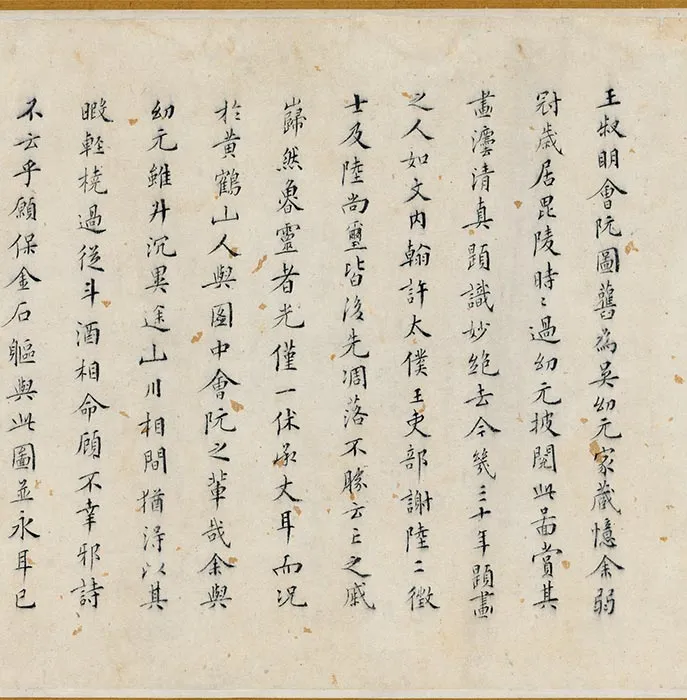 王叔明會阮圖舊為吳幼元家藏憶余弱
冠歲居毘陵時〻過幼元披閱此圖賞其
畫灋清真題識妙絕去今幾三十年題畫
之人如文內翰許太僕王吏部謝陸二徵
士及陸尚璽皆後先凋落不勝云亡之戚
巋然魯靈者光僅一休承丈耳而況
於黃鶴山人與圖中會阮之輩哉余與
幼元雖升沉異途山川相間猶得以其
暇輕橈過從斗酒相命顧不幸邪詩
不云乎願保金石軀與此圖並永耳已